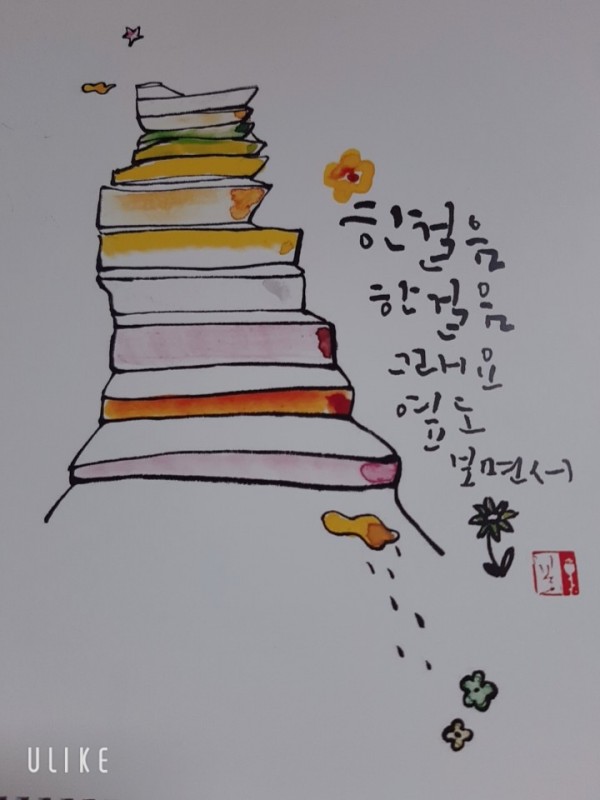 한걸음
한걸음
그래요
옆도
보면서
ULIKE